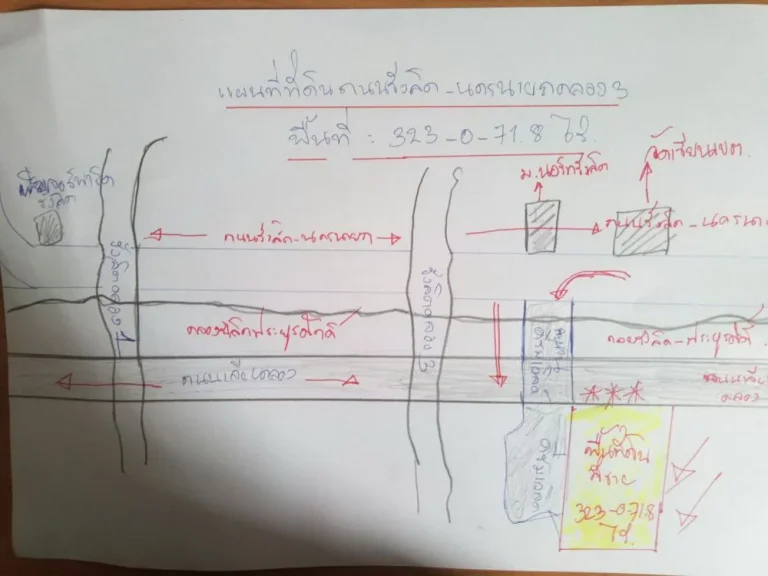 แผนที่ที่ดินถนนรังสิต-นครนายกคลอง3
พื้นที่ : 323-0-71.8 ไร่.
รังสิต
ม.นอร์ทรังสิต
วัดเขียนเขต.
ถนนรังสิต-นครนายก
ถนนรังสิต-นครนายก
รังสิตคลอง 1
รังสิตคลอง 3
คลองรังสิตประยูรศักดิ์
คลองรังสิต-ประยูรศักดิ์
ถนนเลียบคลอง
ถนนเลียบ
คลอง
พื้นที่ดิน
ที่ขาย
323-0-71.8
ไร่.